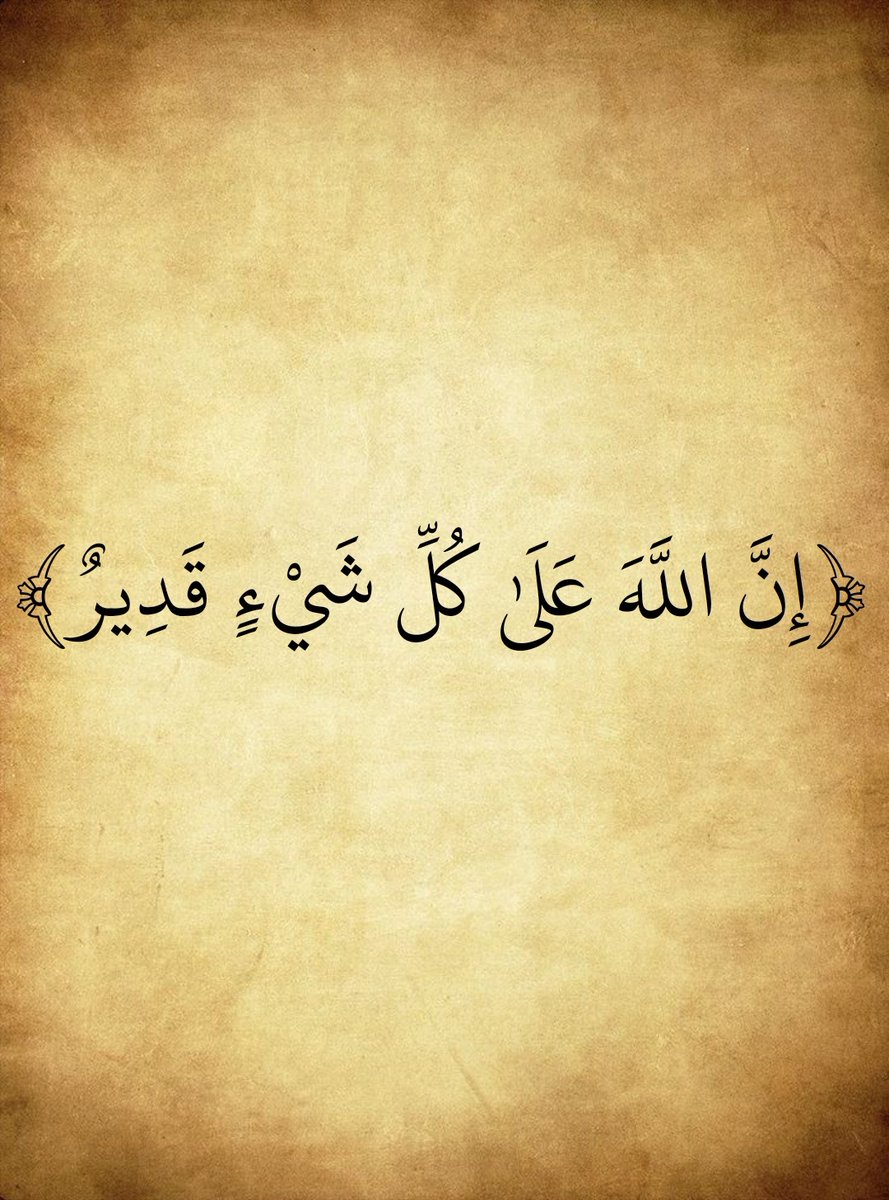 ﴿إِنَّ اللَّهَ عَلَىٰ كُلِّ شَيْءٍ قَدِيرٌ﴾